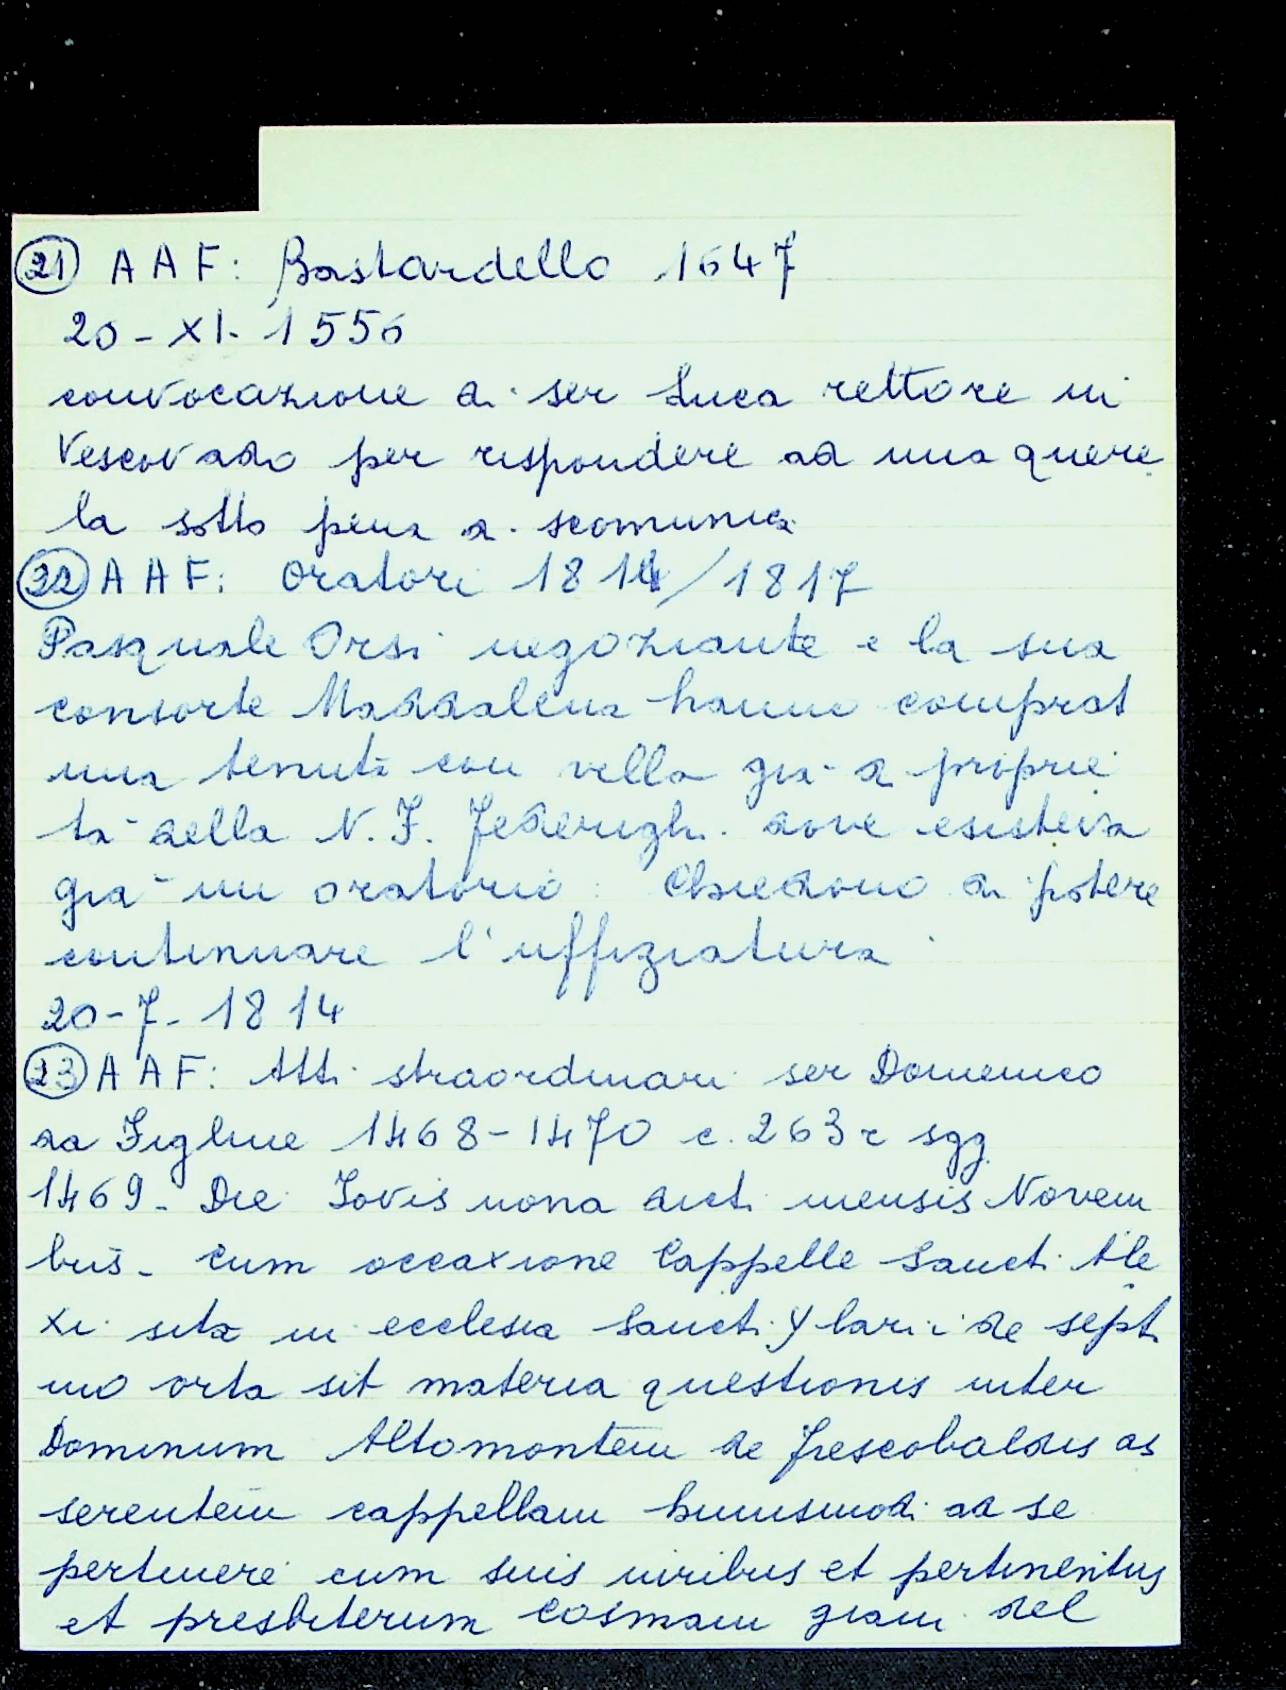 21 A A F: Bastardello 1647
20-XI-1556
convocazione di ser Luca rettore in
Vescovado per rispondere ad una quere
la sotto pena di scomunica
22 A A F: Oratori 1814/1817
Pasquale Orsi negoziante e la sua
consorte Maddalena hanno comprat
una tenuta con villa già di proprie
tà della N. F. Federighi dove esisteva
già un oratorio: Chiedono di potere
continuare l'uffiziatura.
20-7-1814
23 A A F: Atti straordinari ser Domenico
da Figline 1468-1470 c. 263r sgg
1469- Die Jovis nona dicti mensis Novem
bris- Cum occaxione Cappelle Sancti Ale
xi sita in ecclesia Sancti Ylarii de septi
mo orta sit materia questionis inter
Dominum Altomontem de Frescobaldis as
serentem cappellam huiusmodi ad se
pertinere cum suis iuribus et pertinentiis
et presbiterum Cosmam giam del